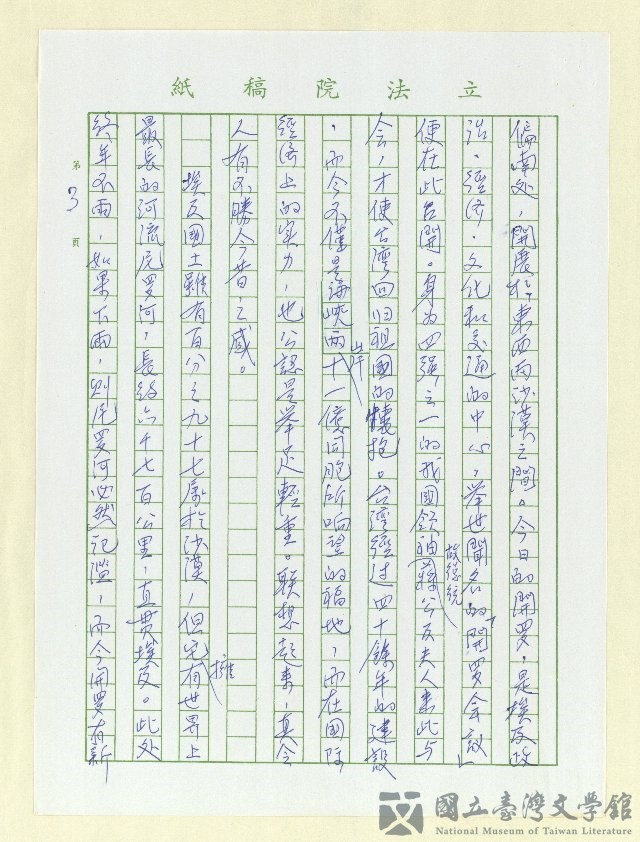 立法院稿紙
偏南处，開展於東西两沙漠之間。今日的開罗，是埃及政
治、經济、文化和交通的中心，举世聞名的「開罗会議」
便在此召開。身为四强之一的我國領袖故總統蔣公及夫人来此与
会，才使台湾回归祖國的懷抱。台湾經过四十餘年的建設
，而今不僅是海峽两岸十一億同胞所响望的福地，而在國际
經济上的実力，也公認是举足輕重。联想起来，真令
人有不勝今昔之感。
埃及國土雖有百分之九十七屬於沙漠，但它擁有世界上
最長的河流尼罗河，長約六千七百公里，直贯埃及。此处
終年不雨，如果下雨，則尼罗河必然氾濫，而今開罗有新
第3頁
國立臺灣文學館
National Museum of Taiwan Literature